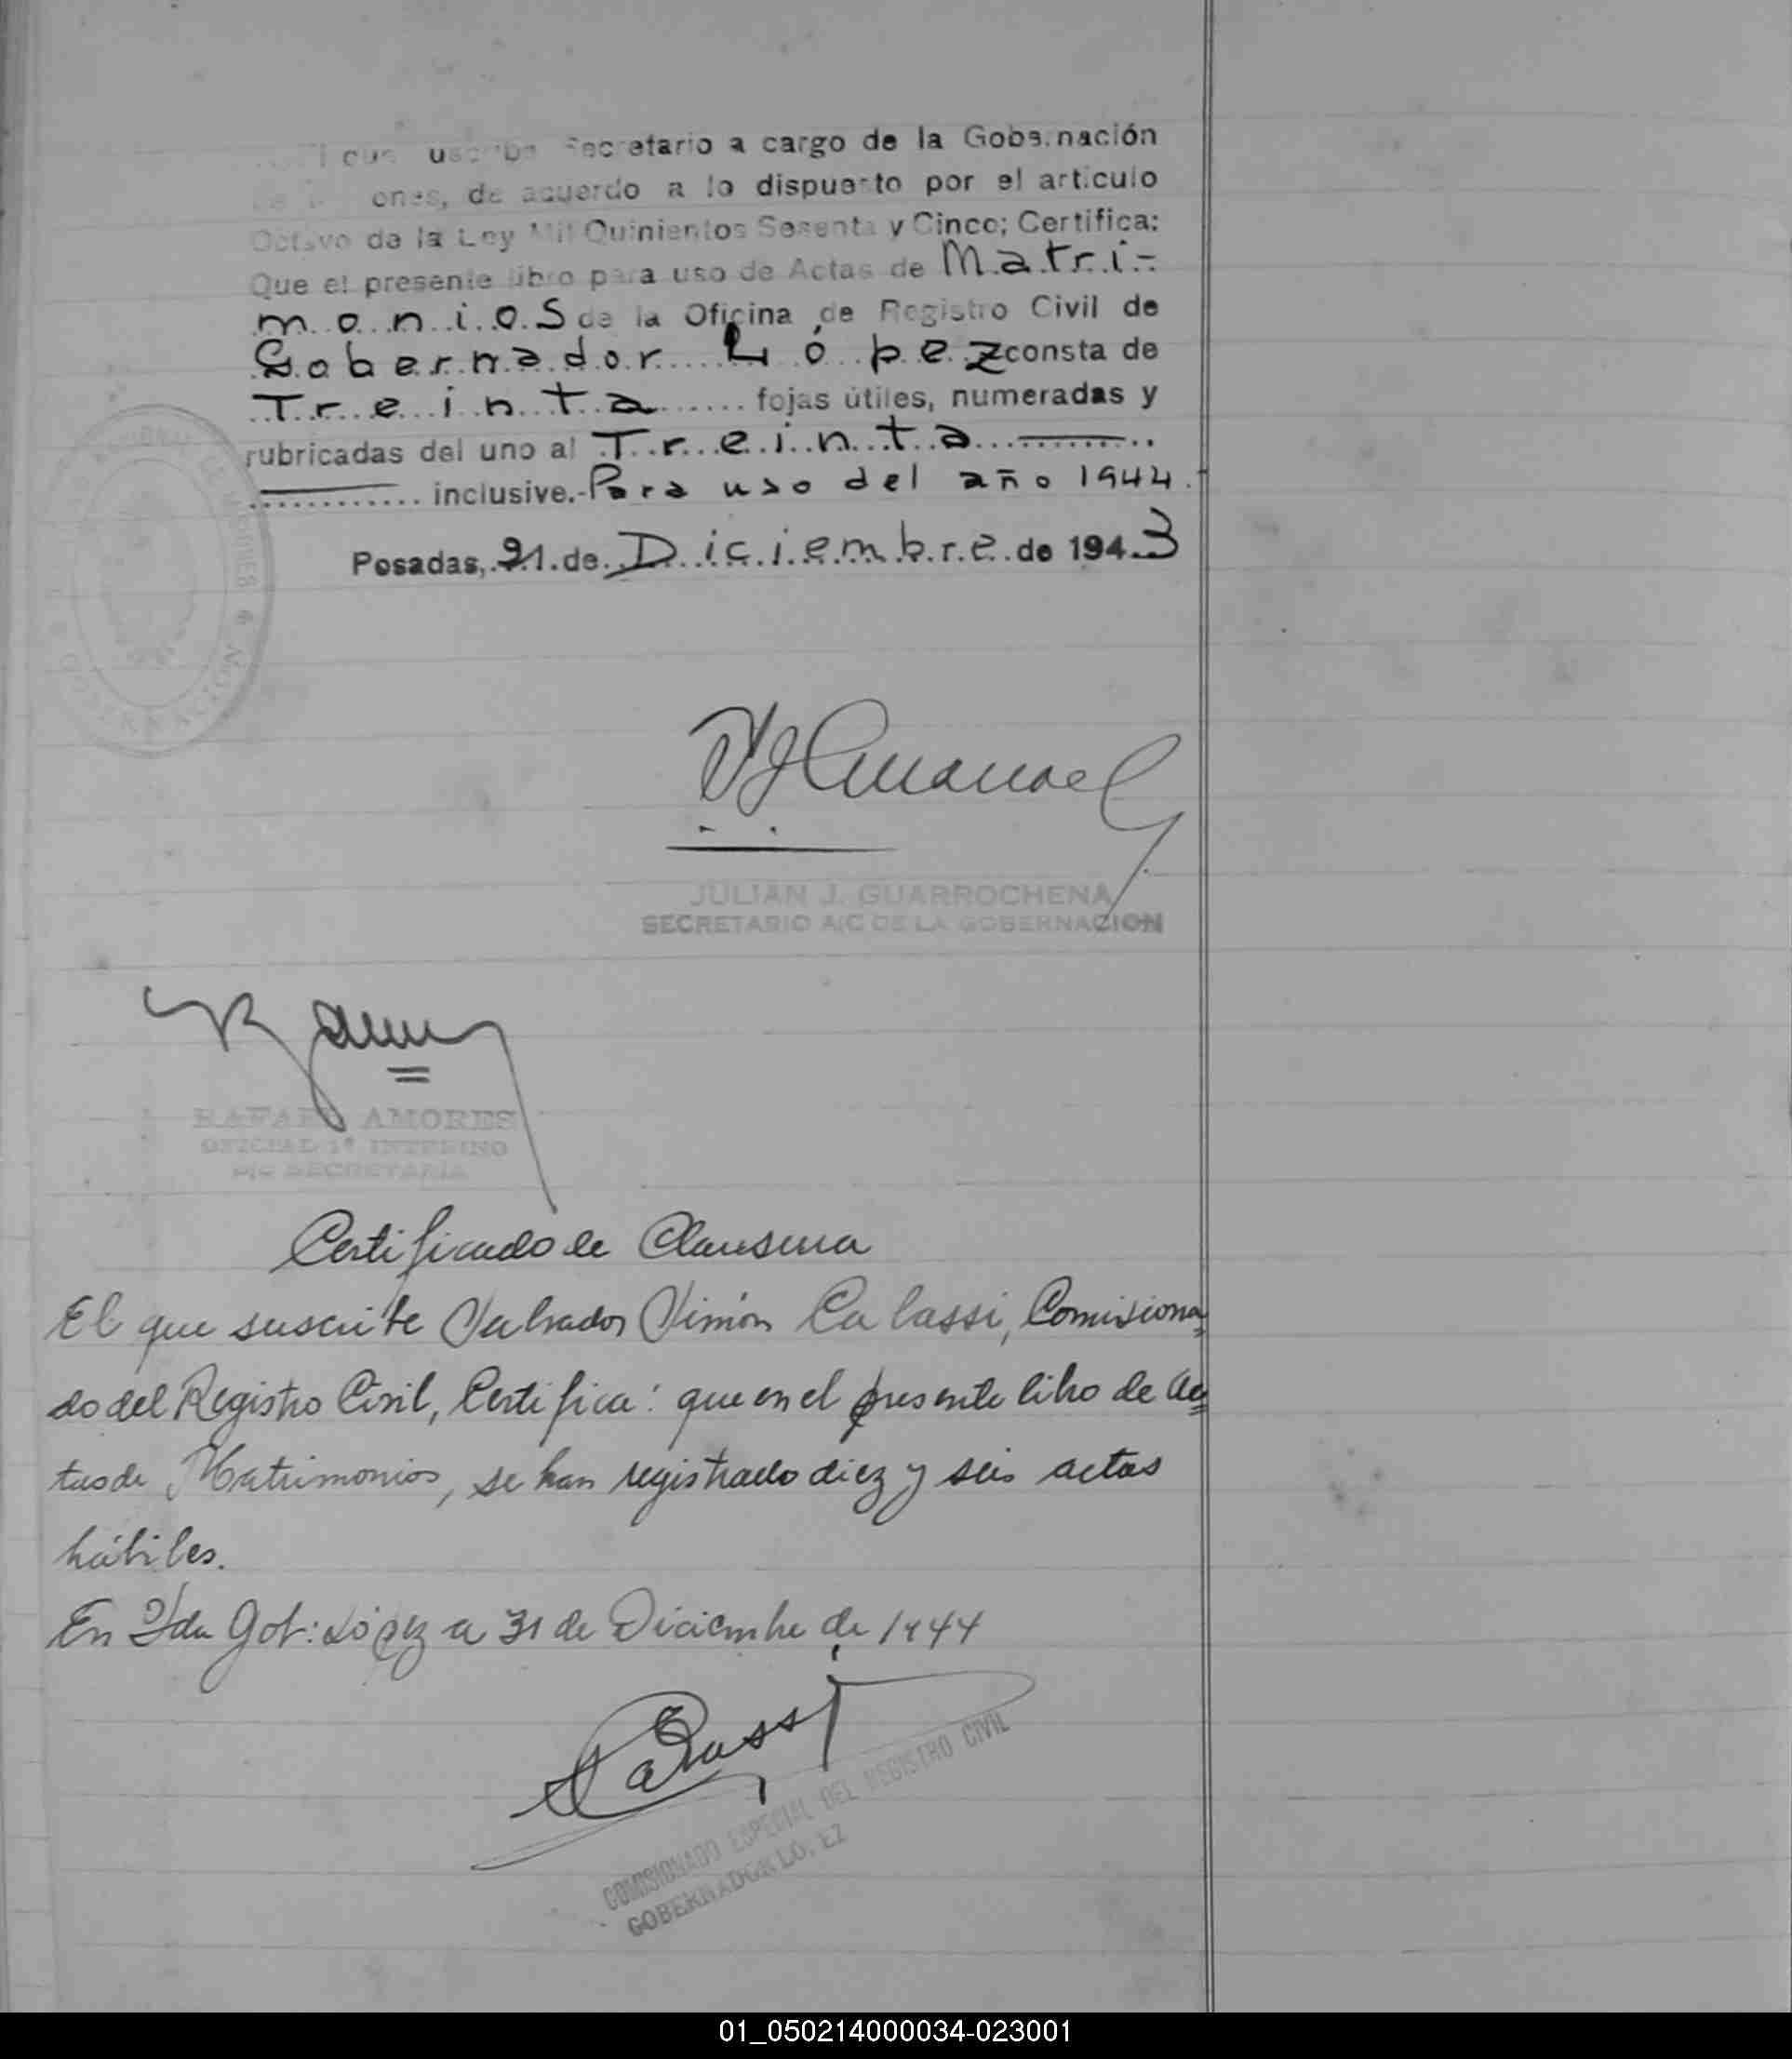 que suscribe Secretario a cargo de la Gobernación
ones, de acuerdo a lo dispuesto por el artículo
Octavo de la Ley Mil Quinientos Sesenta y Cinco; Certifica:
Que el presente libro para uso de Actas de Matri-
monios de la Oficina de Registro Civil de
Gobernador López consta de
Treinta fojas útiles, numeradas y
rubricadas del uno al Treinta
inclusive.- Para uso del año 1944.
Posadas, 21 de Diciembre de 1943
JULIAN J. GUARROCHENA
SECRETARIO A/C DE LA GOBERNACION
RAFAEL AMORES
OFICIAL 1º INTERINO
A/C SECRETARÍA
Certificado de Clausura
El que suscribe Salvador Simón Calassi, Comisiona
do del Registro Civil, Certifica: que en el presente libro de Ac
tas de Matrimonios, se han registrado diez y seis actas
hábiles.
En Gob: López a 31 de Diciembre de 1944
COMISIONADO ESPECIAL DEL REGISTRO CIVIL
GOBERNADOR LOPEZ